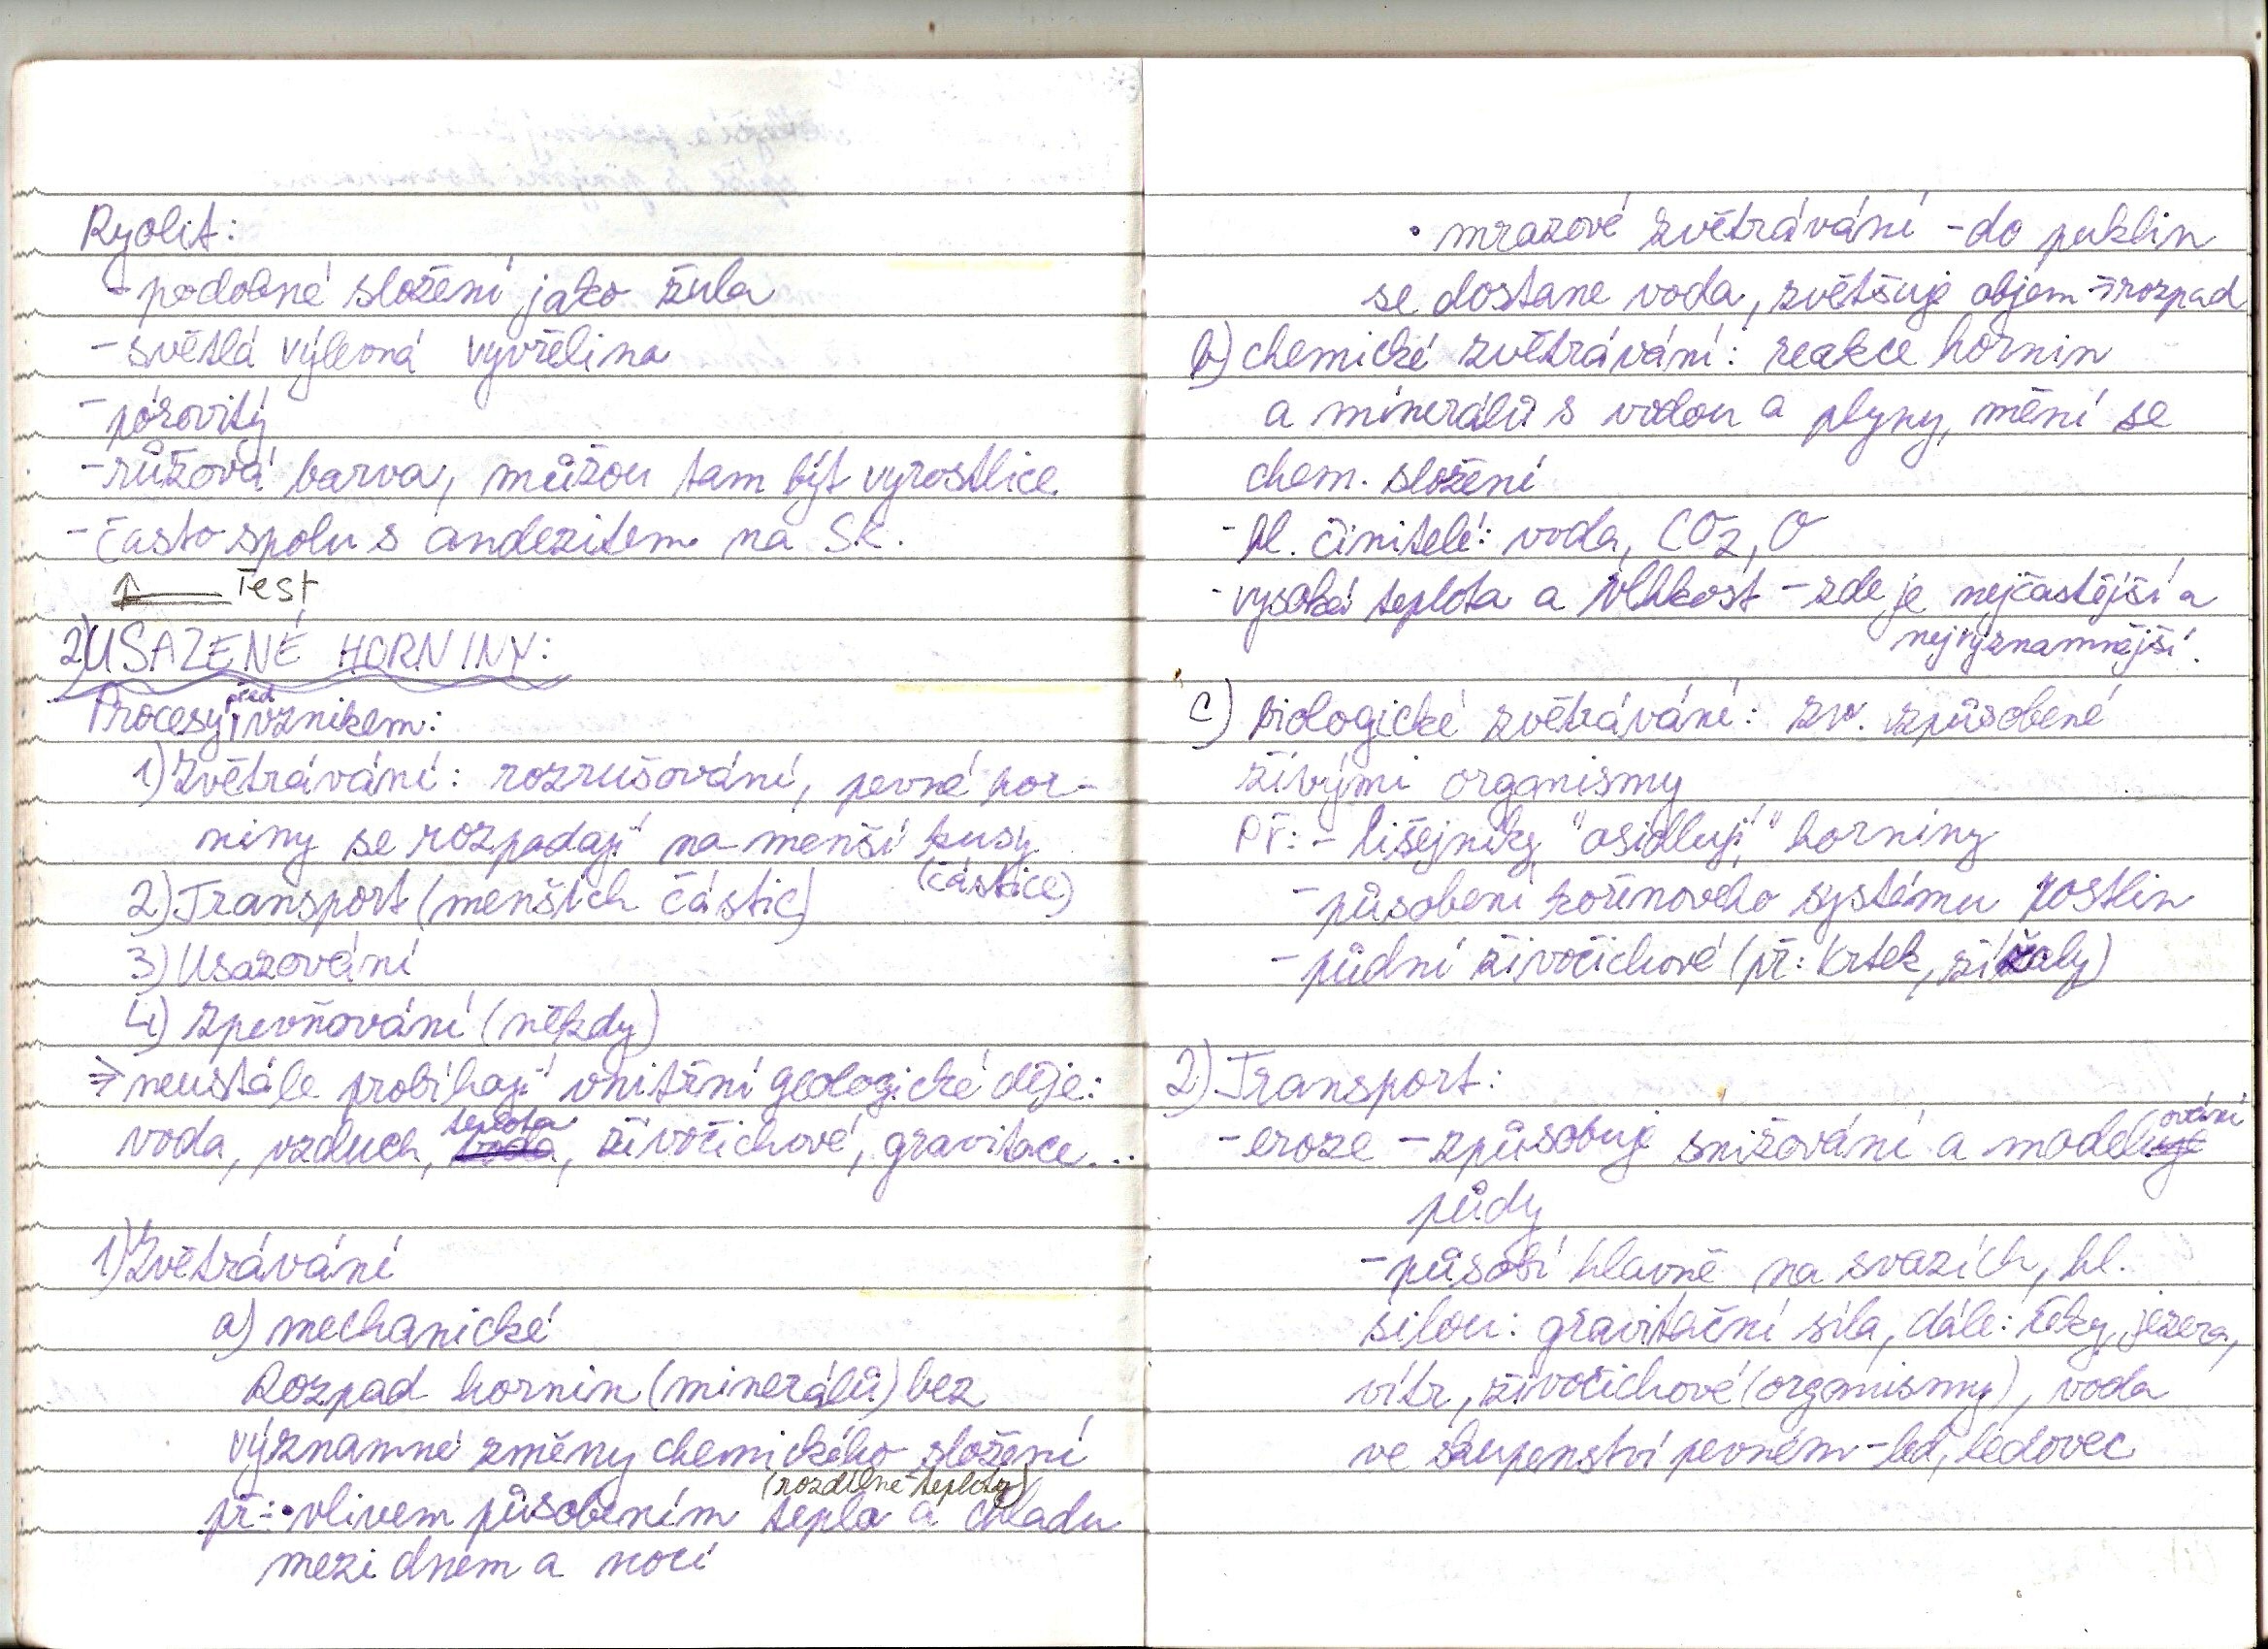 Ryolit:
- podobné složení jako žula
- světlá výlevná vyvřelina
- pórovitý
- růžová barva, můžou tam být vyrostlice
- často spolu s andezitem na SK.
Test
2) USAZENÉ HORNINY:
Procesy před vznikem:
1) Zvětrávání: rozrušování, pevné hor-
niny se rozpadají na menší kusy
(částice)
2) Transport (menších částic)
3) Usazování
4) zpevňování (někdy)
⇒ neustále probíhají vnitřní geologické děje:
voda, vzduch, teplota, živočichové, gravitace...
1) Zvětrávání
a) mechanické
Rozpad hornin (minerálů) bez
významné změny chemického složení
(rozdílné teploty)
př.: • vlivem působením tepla a chladu
mezi dnem a nocí
• mrazové zvětrávání - do puklin
se dostane voda, zvětšuje objem → rozpad
b) chemické zvětrávání: reakce hornin
a minerálů s vodou a plyny, mění se
chem. složení
- hl. činitelé: voda, CO2, O
- vysoká teplota a vlhkost - zde je nejčastější a
nejvýznamnější.
c) biologické zvětrávání: zv. způsobené
živými organismy
Př: - lišejníky "osidlují" horniny
- působení kořenového systému rostlin
- půdní živočichové (př: krtek, žížaly)
2) Transport:
- eroze - způsobuje snižování a modelování
půdy
- působí hlavně na svazích, hl.
silou: gravitační síla, dále: řeky, jezera,
vítr, živočichové (organismy), voda
ve skupenství pevném - led, ledovec